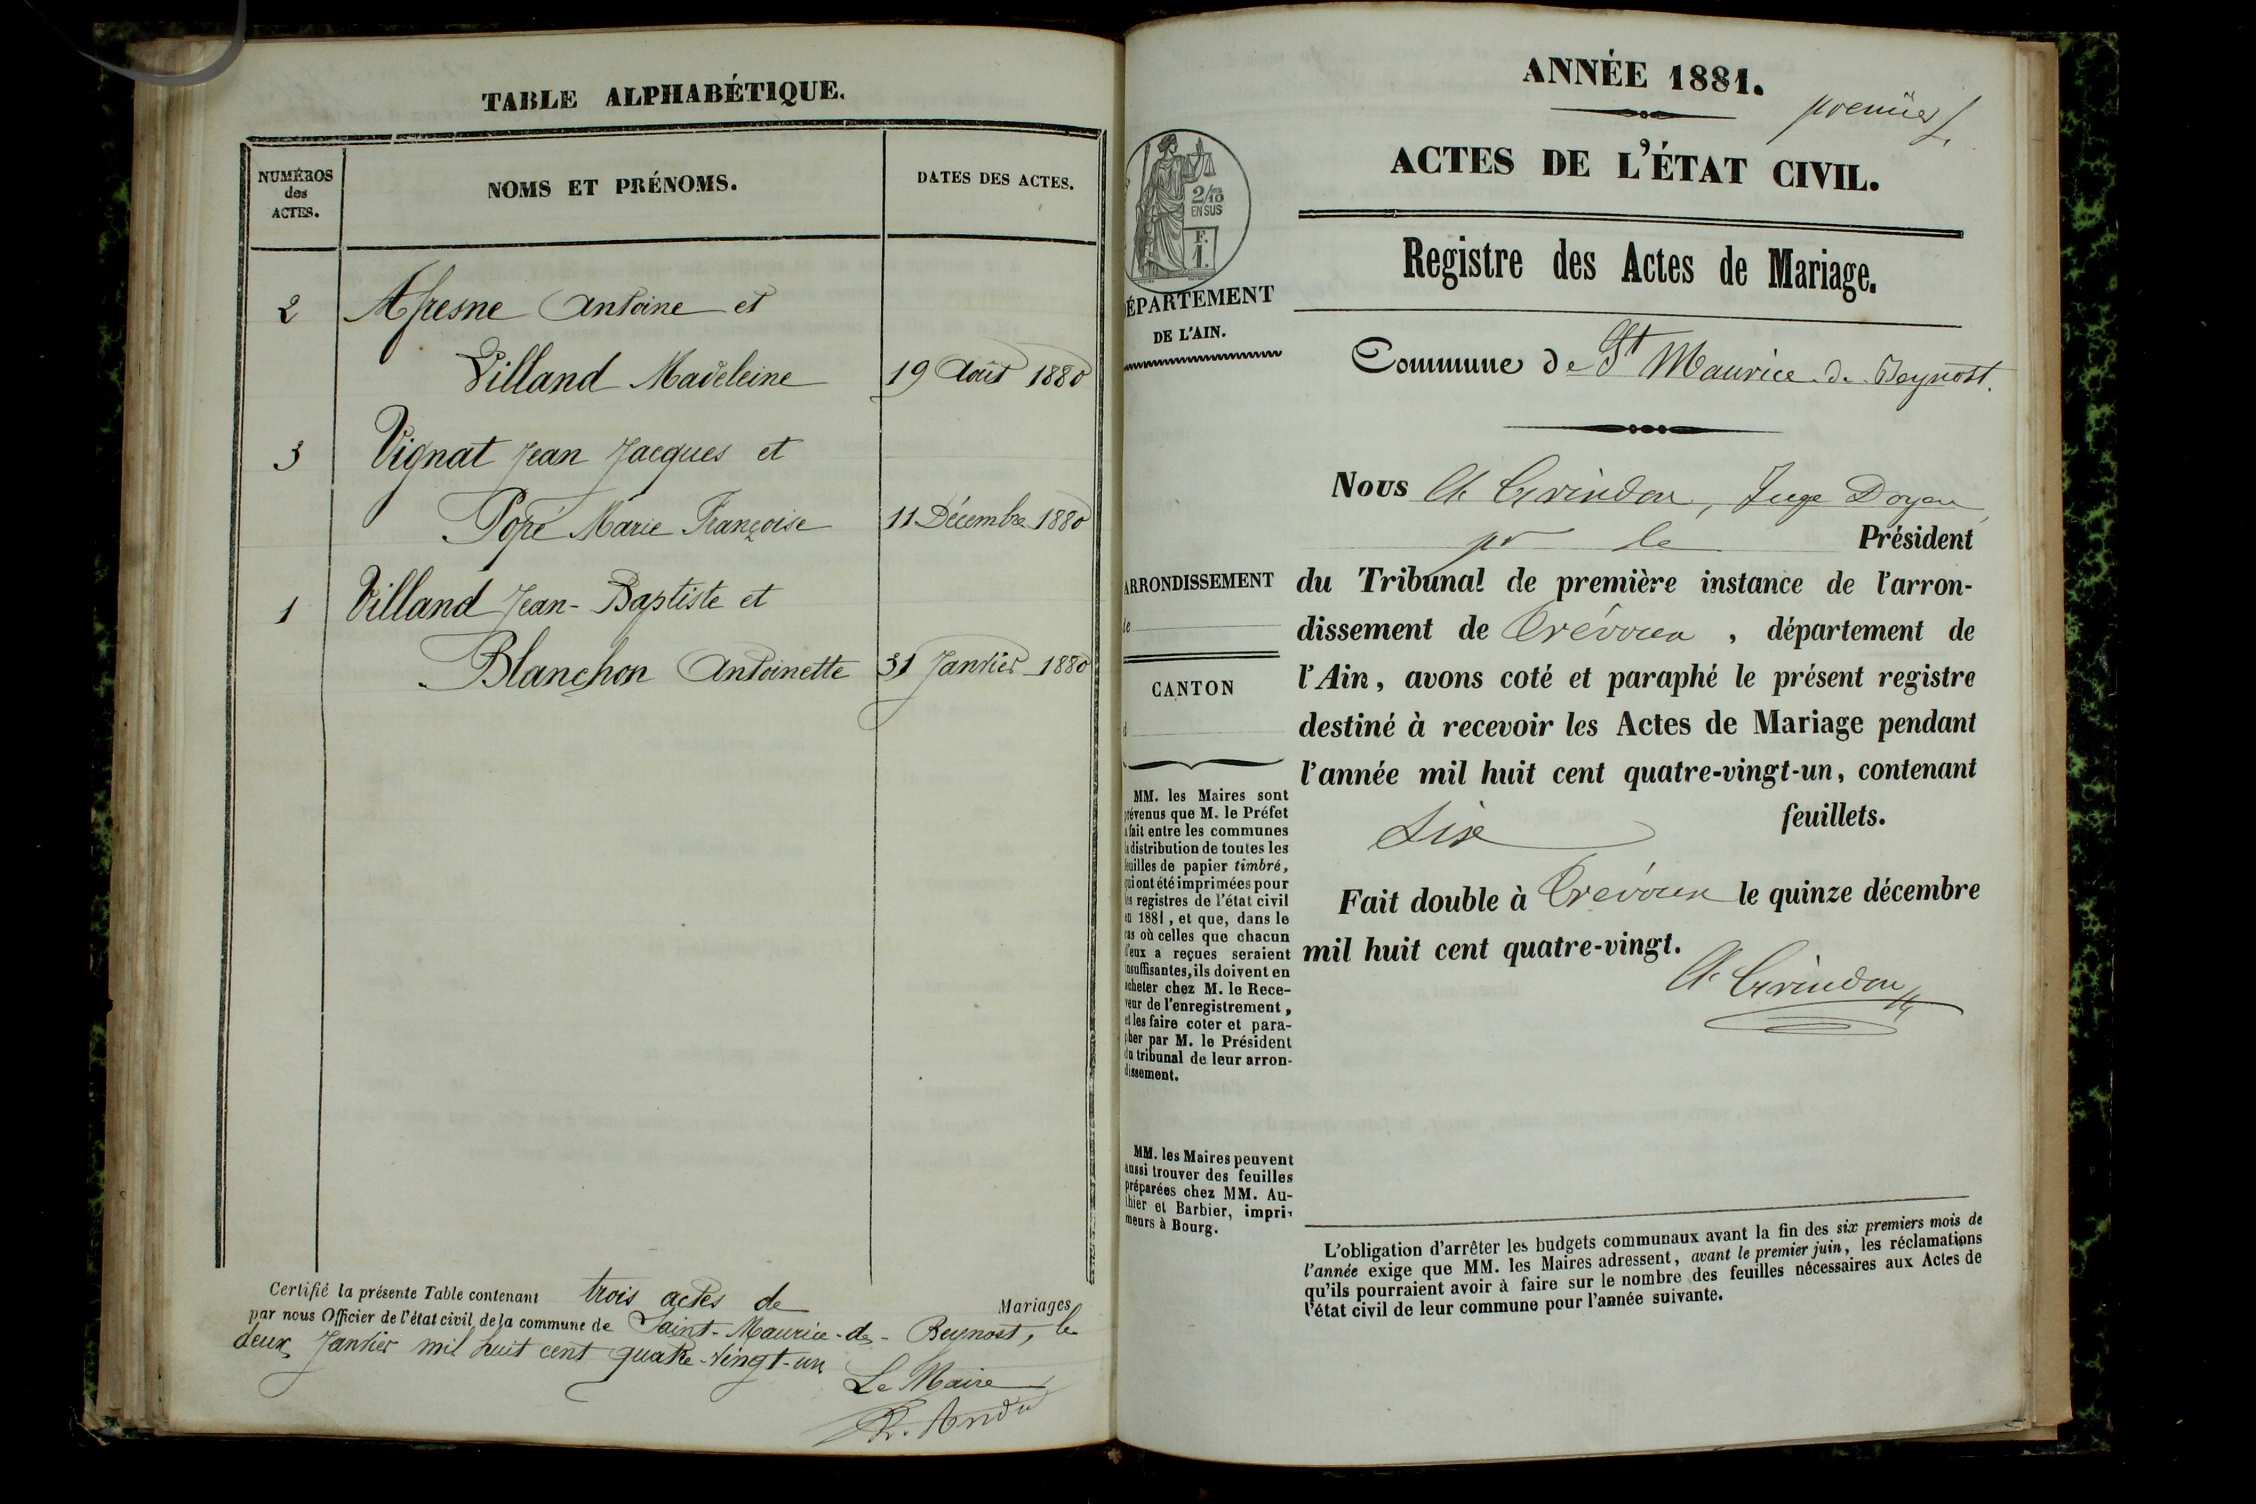 TABLE ALPHABÉTIQUE.
NUMÉROS
des
ACTES.
NOMS ET PRÉNOMS.
DATES DES ACTES.
2 Antoine et
Villand Madeleine 19 Août 1880
3 Vignat Jean Jacques et
Popé Marie Françoise 11 Décembre 1880
1 Villand Jean-Baptiste et
Blanchon Antoinette 31 Janvier 1880
Certifié la présente Table contenant trois actes de Mariages
par nous Officier de l'état civil de la commune de Saint-Maurice-de-Beynost, le
deux Janvier mil huit cent quatre-vingt-un
Le Maire
ANNÉE 1881.
premier
ACTES DE L'ÉTAT CIVIL.
Registre des Actes de Mariage.
2/10
EN SUS
F.
1.
DÉPARTEMENT
DE L'AIN.
Commune de St Maurice-de-Beynost.
Nous Juge Doyen,
pr le Président
ARRONDISSEMENT
de
CANTON
d
du Tribunal de première instance de l'arron-
dissement de Trévoux, département de
l'Ain, avons coté et paraphé le présent registre
destiné à recevoir les Actes de Mariage pendant
l'année mil huit cent quatre-vingt-un, contenant
six feuillets.
Fait double à Trévoux le quinze décembre
mil huit cent quatre-vingt.
MM. les Maires sont
prévenus que M. le Préfet
a fait entre les communes
la distribution de toutes les
feuilles de papier timbré,
qui ont été imprimées pour
les registres de l'état civil
en 1881, et que, dans le
cas où celles que chacun
d'eux a reçues seraient
insuffisantes, ils doivent en
acheter chez M. le Rece-
veur de l'enregistrement,
et les faire coter et para-
pher par M. le Président
du tribunal de leur arron-
dissement.
MM. les Maires peuvent
aussi trouver des feuilles
préparées chez MM. Au-
thier et Barbier, impri-
meurs à Bourg.
L'obligation d'arrêter les budgets communaux avant la fin des six premiers mois de
l'année exige que MM. les Maires adressent, avant le premier juin, les réclamations
qu'ils pourraient avoir à faire sur le nombre des feuilles nécessaires aux Actes de
l'état civil de leur commune pour l'année suivante.